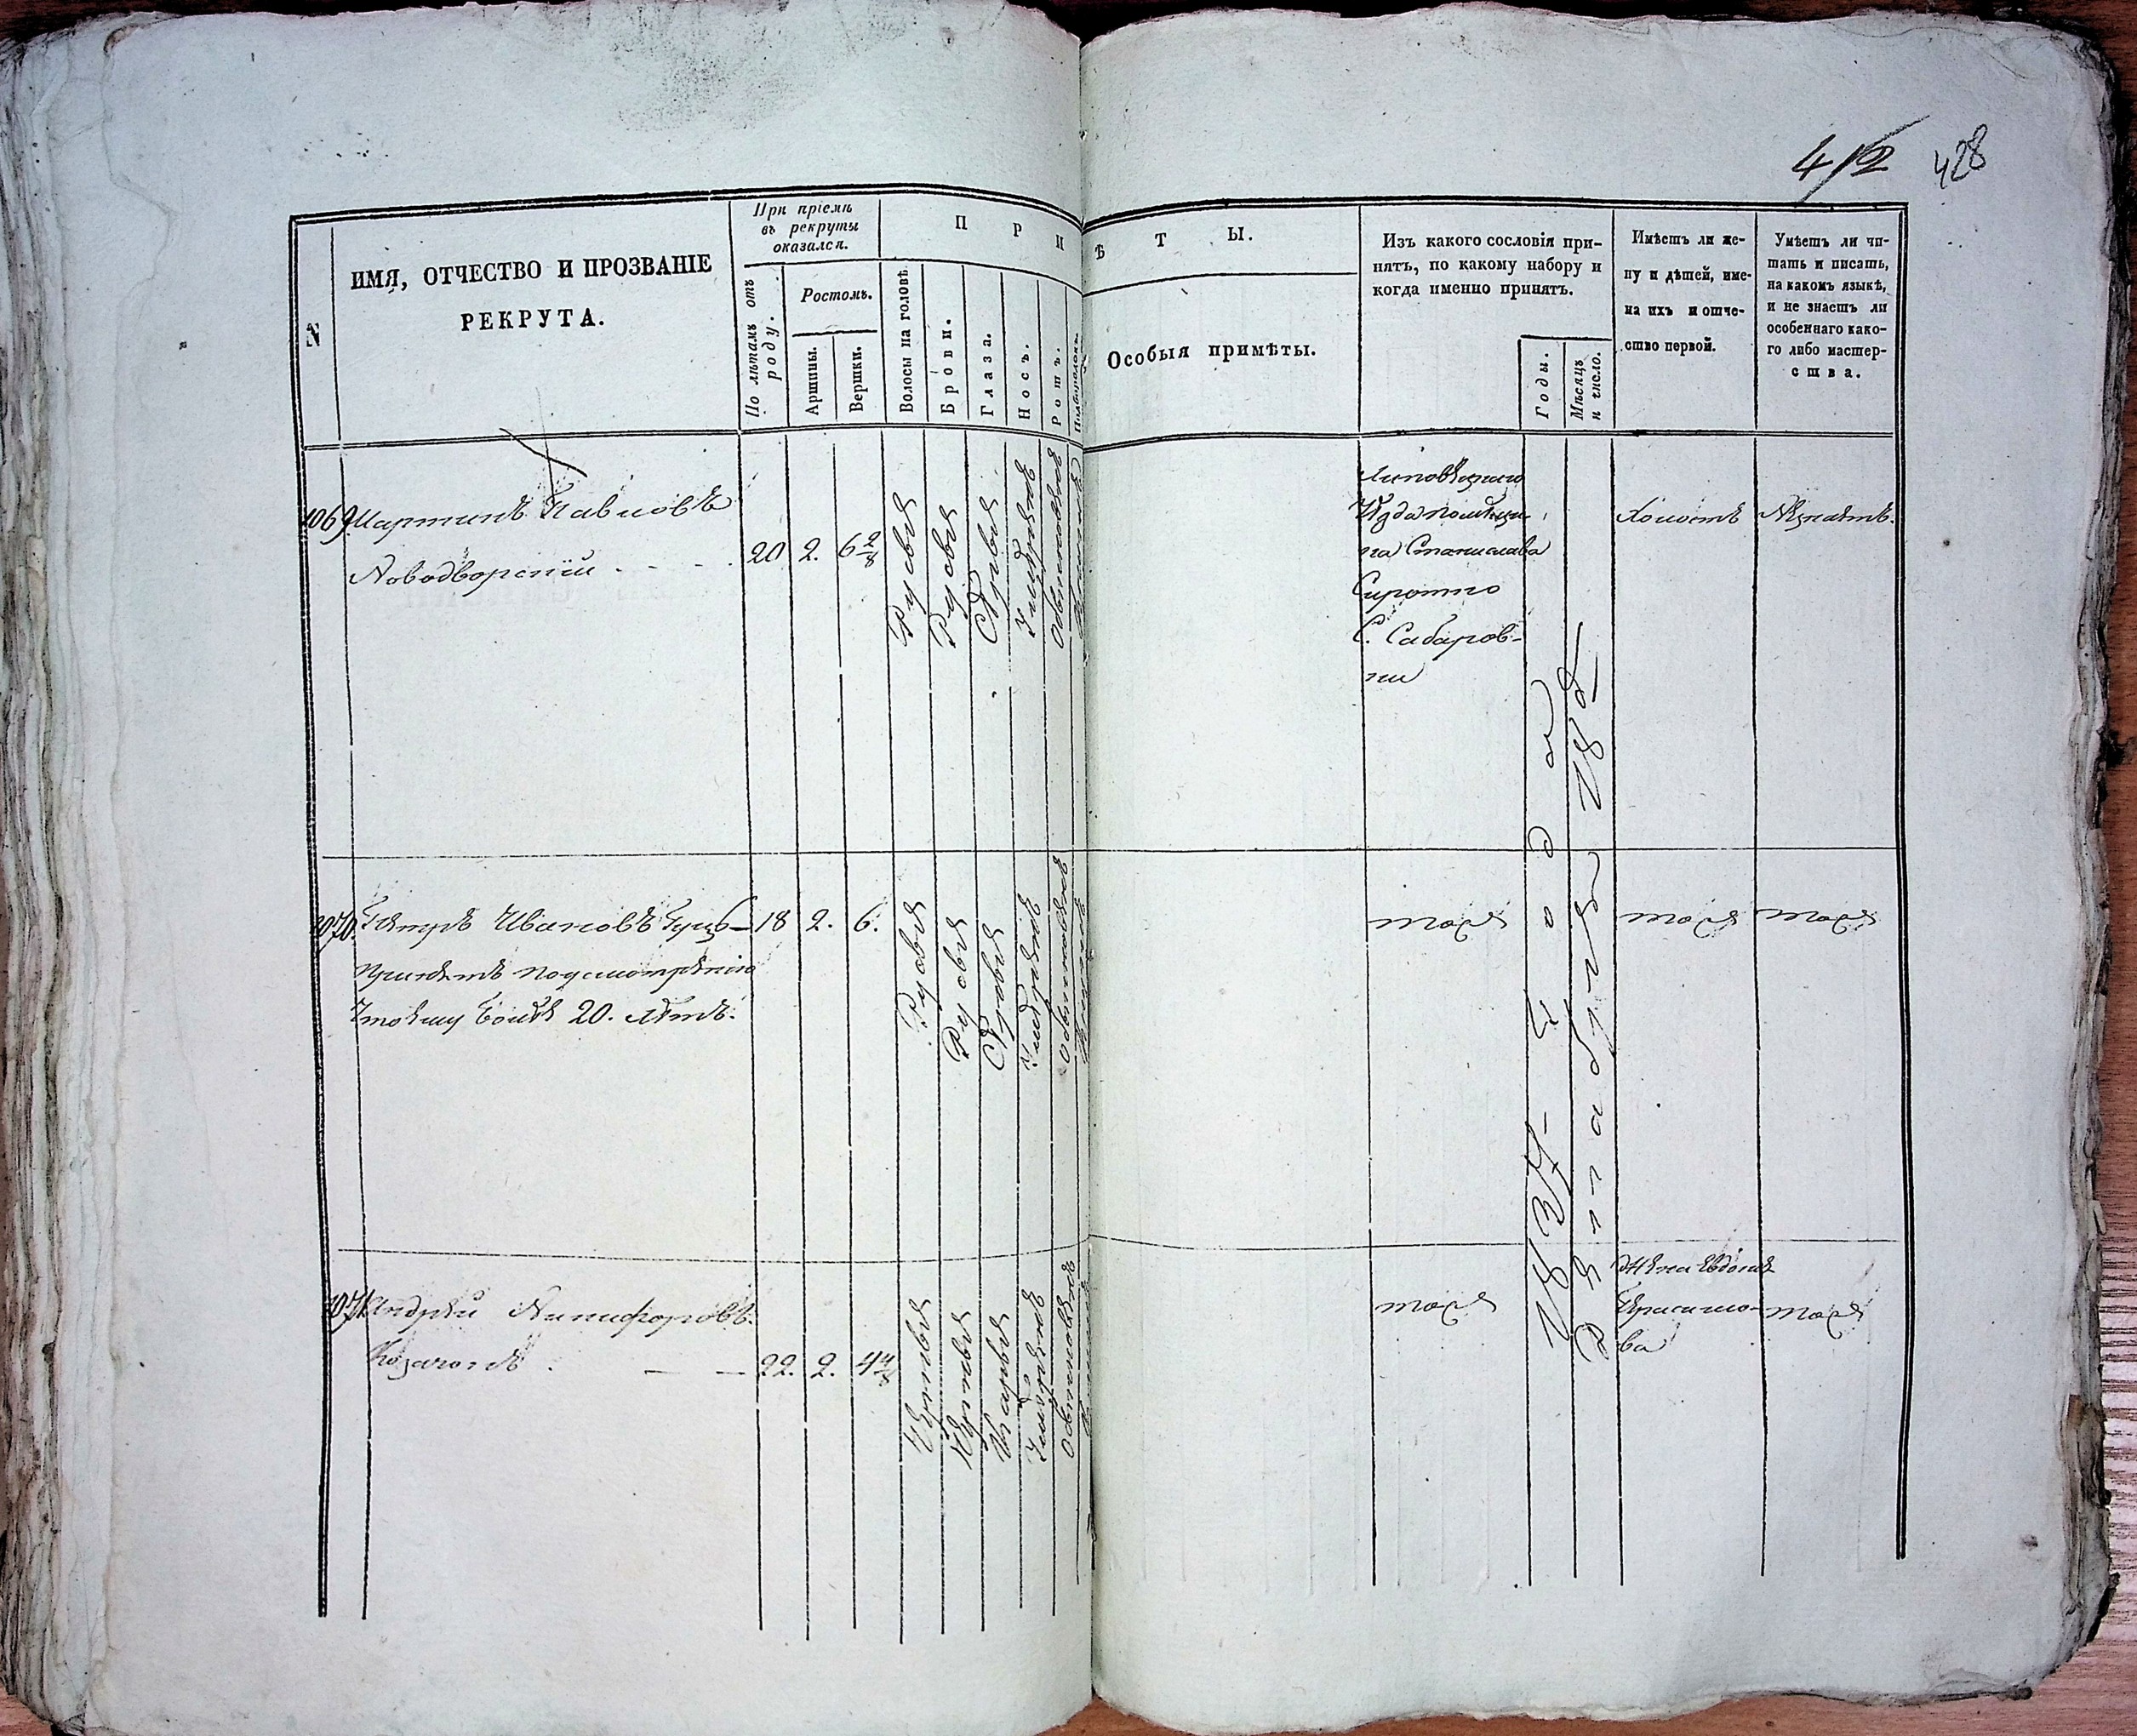 412 428
N
ИМЯ, ОТЧЕСТВО И ПРОЗВАНІЕ
РЕКРУТА.
При пріемѣ
въ рекруты
оказался.
По лѣтамъ отъ
роду.
Ростомъ.
Аршины.
Вершки.
П Р И
Волосы на головѣ.
Брови.
Глаза.
Носъ.
Ротъ.
Подбородокъ.
Ѣ Т Ы.
Особыя примѣты.
Изъ какого сословія при-
нятъ, по какому набору и
когда именно принятъ.
Годы.
Мѣсяцъ
и число.
Имѣетъ ли же-
ну и дѣтей, име-
на ихъ и отче-
ство первой.
Умѣетъ ли чи-
тать и писать,
на какомъ языкѣ,
и не знаетъ ли
особеннаго како-
го либо мастер-
ства.
1069. Мартинъ Павловъ
Новодворскій
20 2. 6 2/8
Русыя
Русыя
Сѣрыя
Умѣренъ
Обыкновенъ
Липовецкаго
Уѣзда помѣщи-
ка Станислава
Сиротко
С. Сабаров-
ки
Холостъ
Неумѣетъ.
1070. Петръ Ивановъ
18 2. 6.
принятъ по усмотренію
что ему более 20. летъ.
Русыя
Русыя
Сѣрыя
Умѣренъ
Обыкновенъ
тоже
тоже
тоже
1071. Андрей Никифоровъ.
Козачокъ
22. 2. 4 4/8
Черныя
Черныя
Карыя
Умѣренъ
Обыкновенъ
тоже
Жена Евдокія
Герасимо-
ва
тоже
183 года
Декабря 18